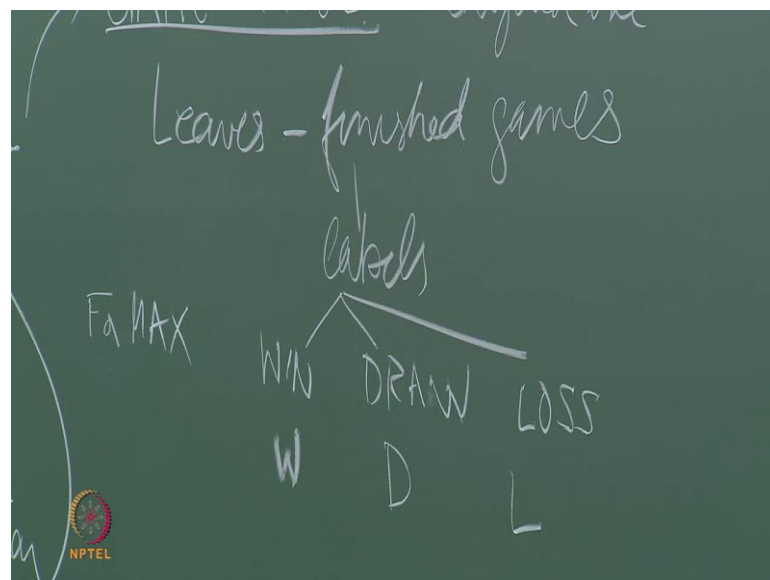 Leaves - finished games
labels
Fa MAX
WIN DRAW LOSS
W D L
NPTEL